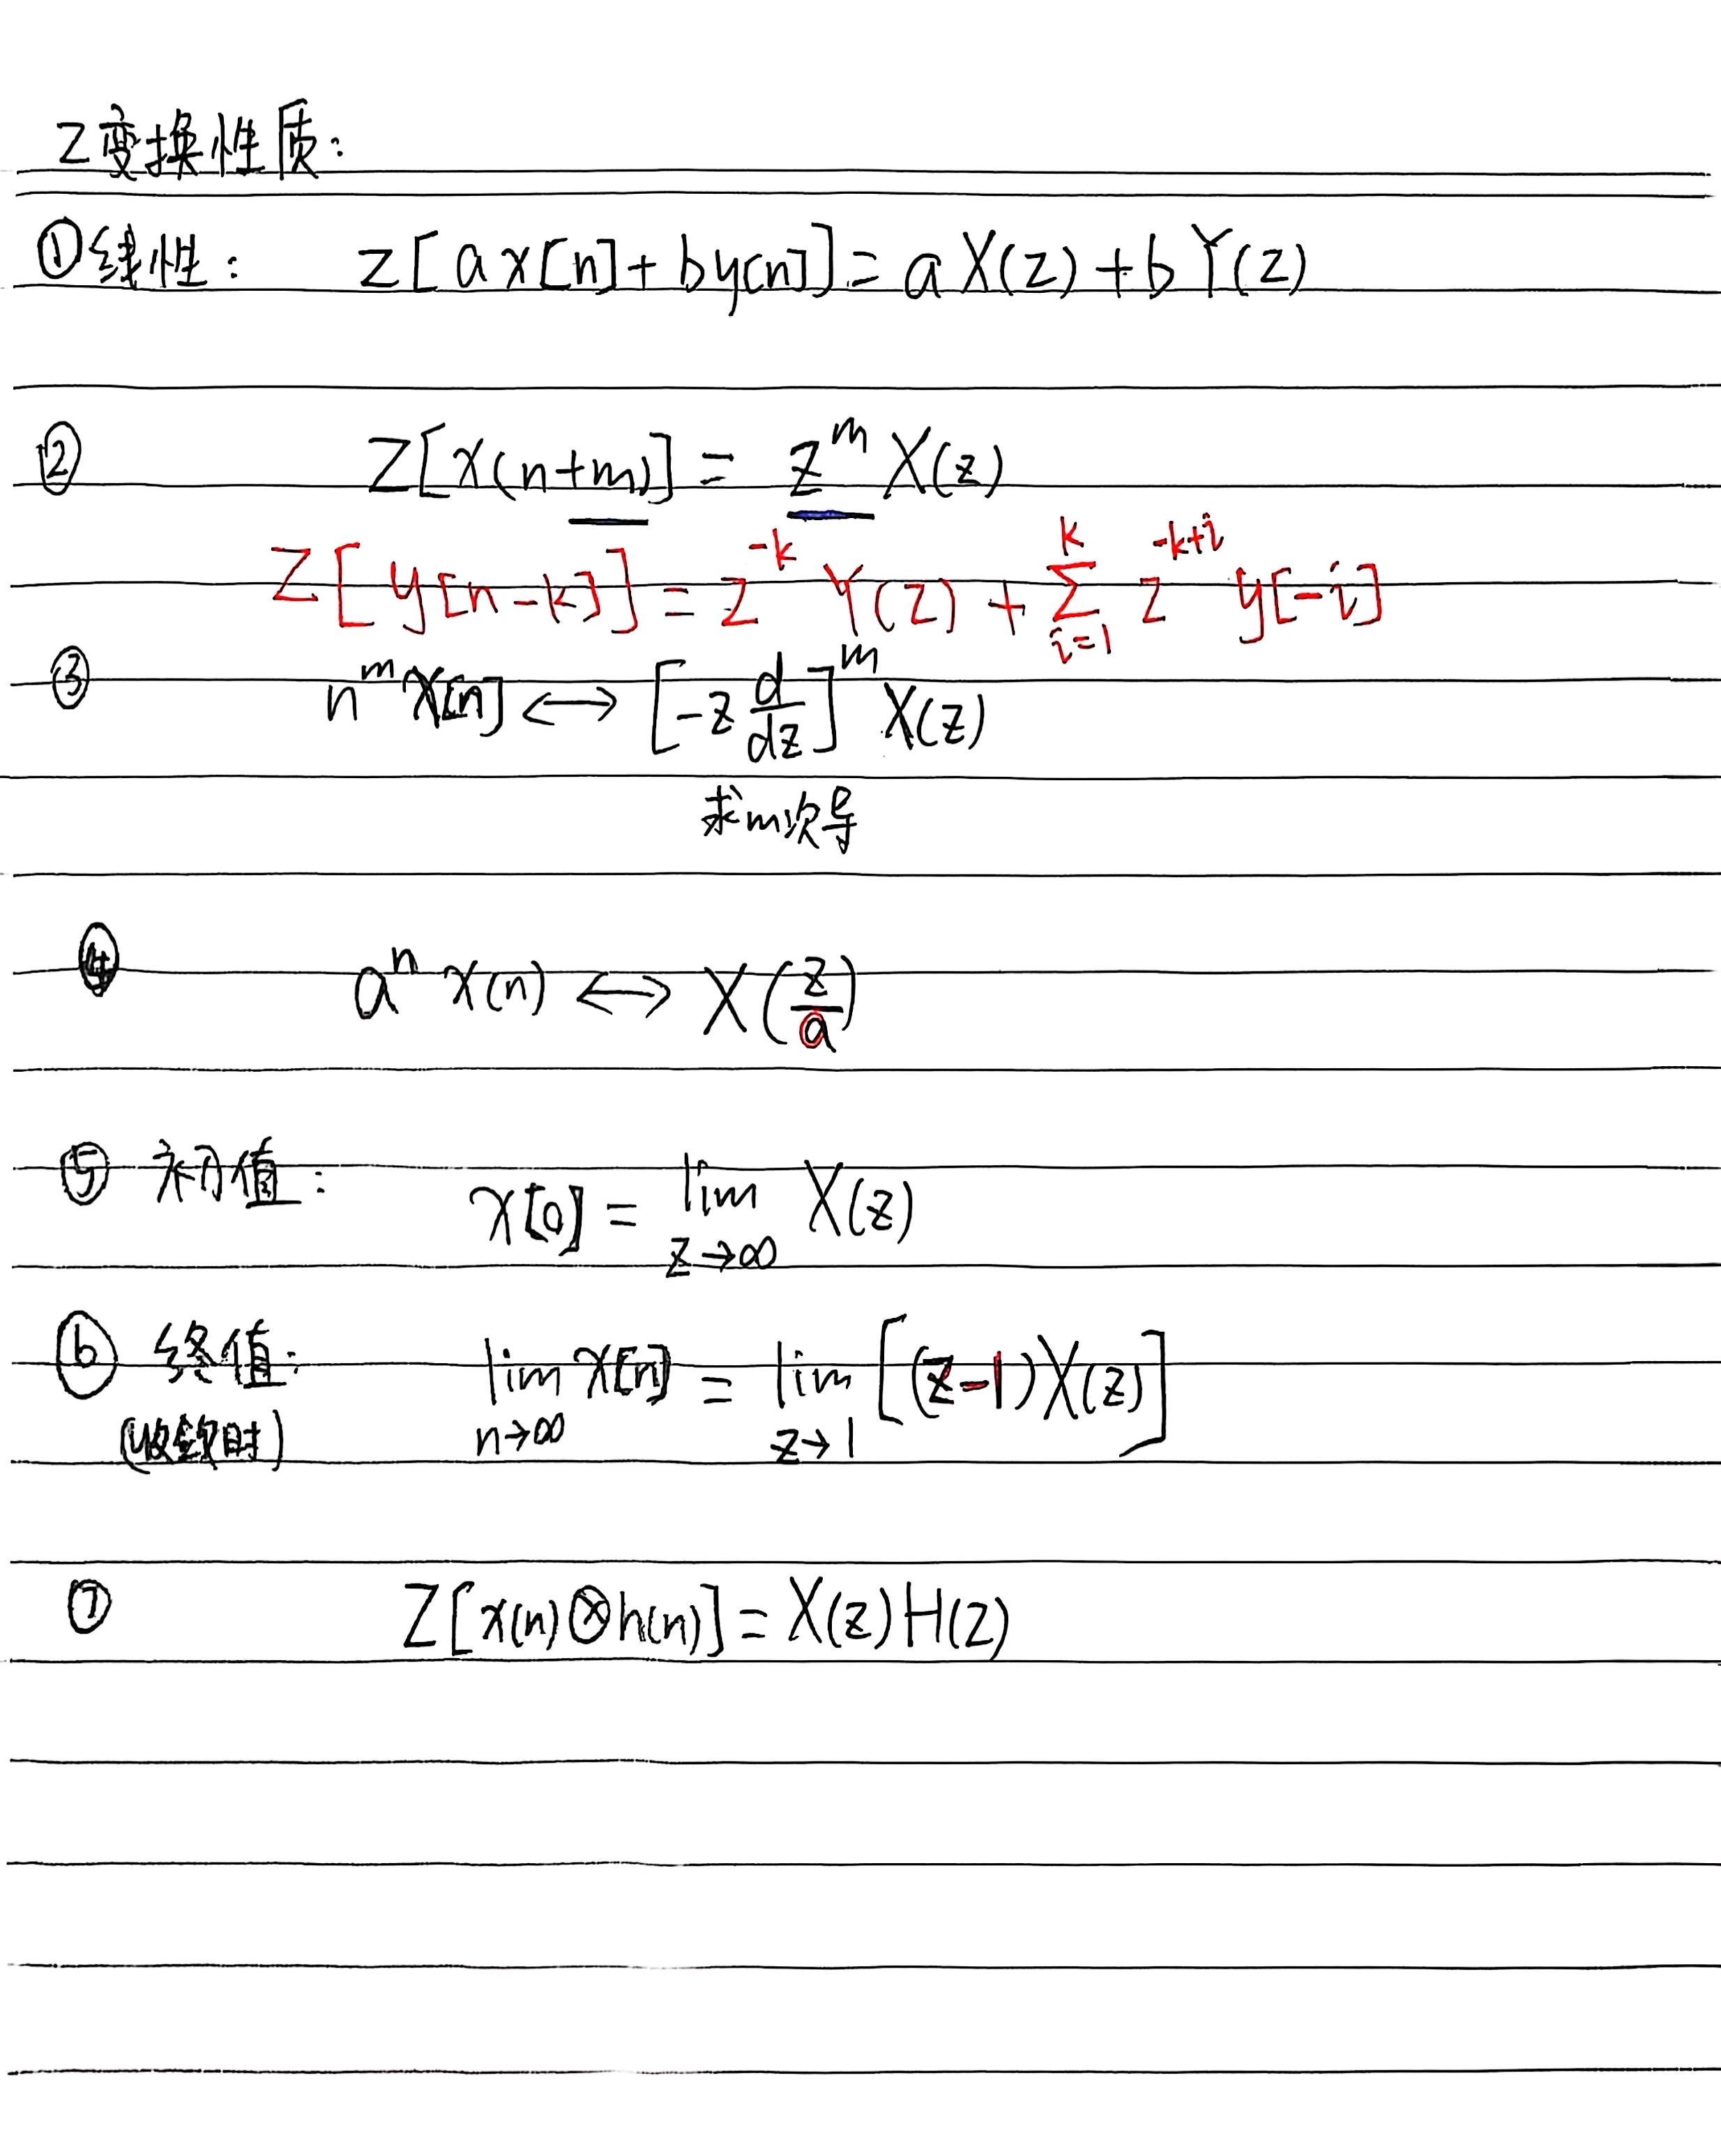 Z变换性质:
①线性: Z[ax[n]+by[n]]=aX(z)+bY(z)
② Z[x(n+m)] = z^m X(z)
Z[y[n-k]] = z^{-k} Y(z) + \sum_{i=1}^{k} z^{-k+i} y[-i]
③ n^m x[n] ↔ [-z \frac{d}{dz}]^m X(z)
求m次导
④ a^n x(n) ↔ X(\frac{z}{a})
⑤ 初值: x[0] = \lim_{z→∞} X(z)
⑥ 终值: \lim_{n→∞} x[n] = \lim_{z→1} [(z-1)X(z)]
(收敛时)
⑦ Z[x(n)⊗h(n)] = X(z)H(z)